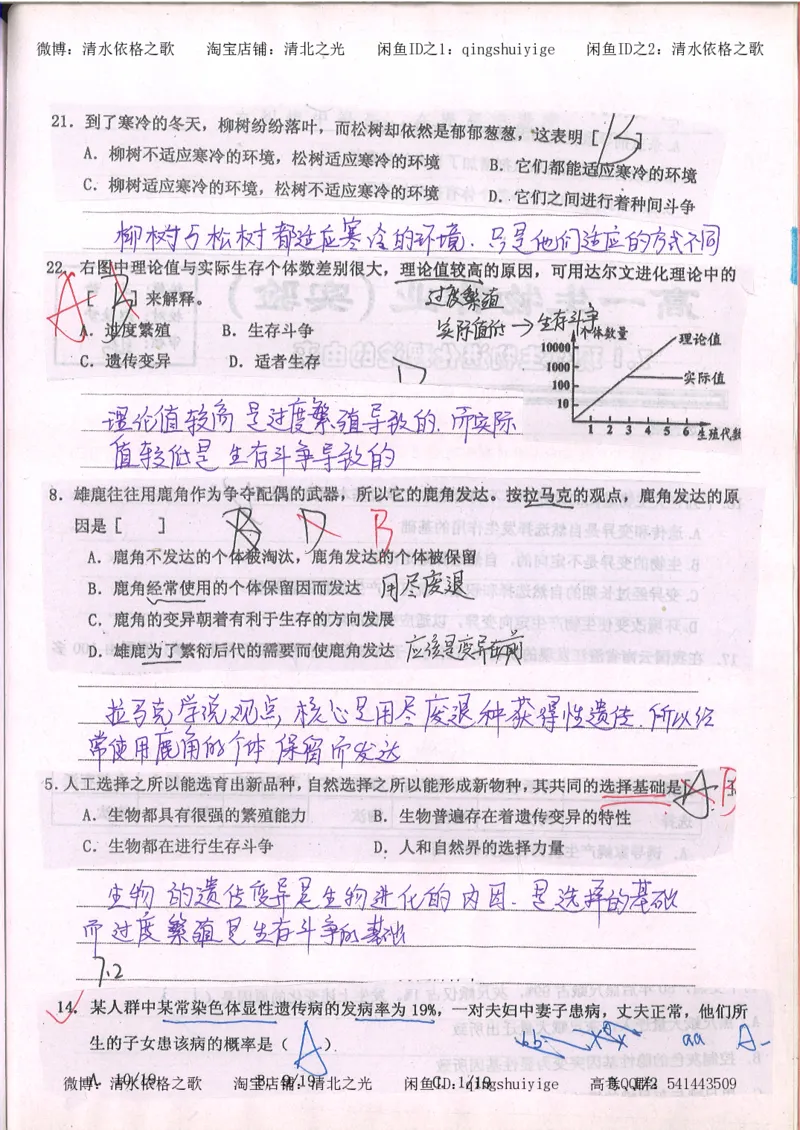 微博：清水依格之歌　淘宝店铺：清北之光　闲鱼ID之1：qingshuiyige　闲鱼ID之2：清水依格之歌
21．到了寒冷的冬天，柳树纷纷落叶，而松树却依然是郁郁葱葱，这表明［B］
A．柳树不适应寒冷的环境，松树适应寒冷的环境　B．它们都能适应寒冷的环境
C．柳树适应寒冷的环境，松树不适应寒冷的环境　D．它们之间进行着种间斗争
柳树与松树都适应寒冷的环境．只是他们适应的方式不同
22．右图中理论值与实际生存个体数差别很大，理论值较高的原因，可用达尔文进化理论中的
A［B］来解释。　过度繁殖
A．过度繁殖　B．生存斗争　实际值低→生存斗争
C．遗传变异　D．适者生存
个体数量
10000
1000
100
10
理论值
实际值
1 2 3 4 5 6 生殖代数
理论值较高是过度繁殖导致的．而实际
值较低是生存斗争导致的
8．雄鹿往往用鹿角作为争夺配偶的武器，所以它的鹿角发达。按拉马克的观点，鹿角发达的原
因是［　］B D B
A．鹿角不发达的个体被淘汰，鹿角发达的个体被保留
B．鹿角经常使用的个体保留因而发达　用尽废退
C．鹿角的变异朝着有利于生存的方向发展
D．雄鹿为了繁衍后代的需要而使鹿角发达　应该是变异在前
拉马克学说观点，核心是用尽废退种获得性遗传．所以经
常使用鹿角的个体保留而发达
5．人工选择之所以能选育出新品种，自然选择之所以能形成新物种，其共同的选择基础是［A］B
A．生物都具有很强的繁殖能力　B．生物普遍存在着遗传变异的特性
C．生物都在进行生存斗争　D．人和自然界的选择力量
生物的遗传变异是生物进化的内因．是选择的基础
而过度繁殖是生存斗争的基础
7.2
14．某人群中某常染色体显性遗传病的发病率为19%，一对夫妇中妻子患病，丈夫正常，他们所
生的子女患该病的概率是（A）　aa　A-
A．10/19　B．9/19　C．1/19
微博：清水依格之歌　淘宝店铺：清北之光　闲鱼ID：qingshuiyige　541443509